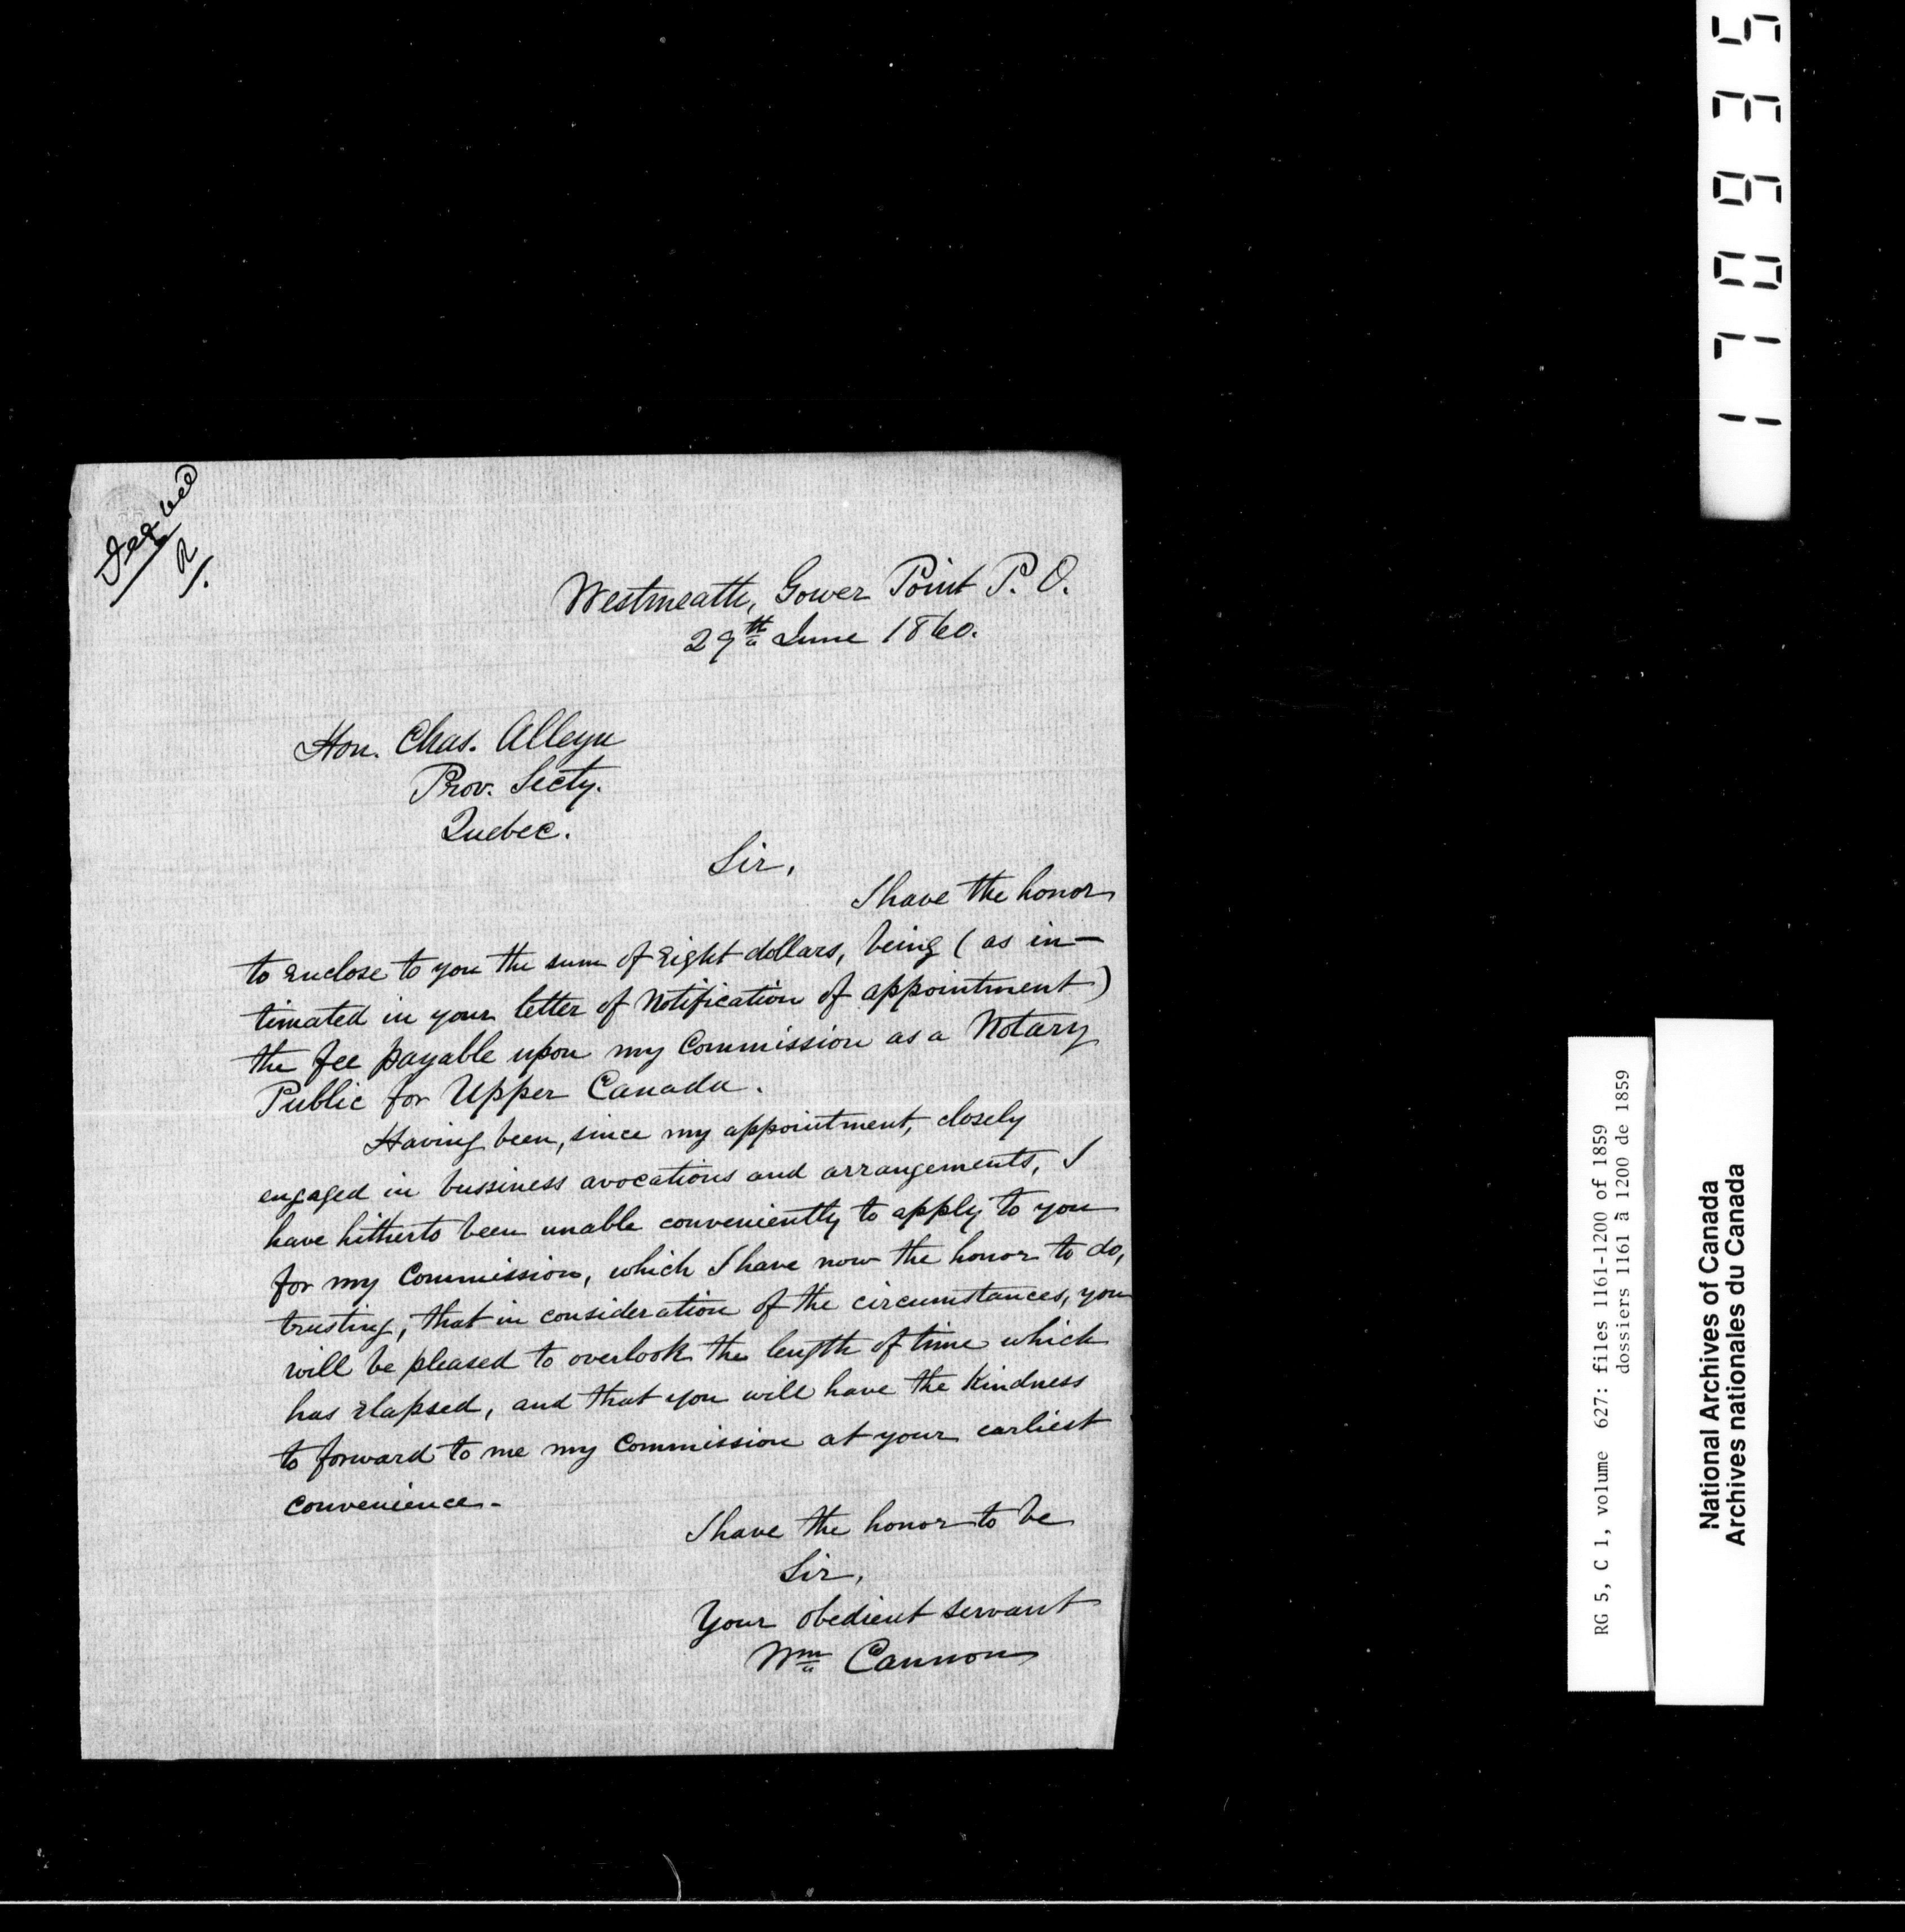 Westmeath, Gower Point P. O.
29th June 1860.
Hon. Chas. Alleyn
Prov. Secty.
Quebec.
Sir,
I have the honor
to enclose to you the sum of Eight dollars, being (as in-
timated in your letter of Notification of appointment)
the fee payable upon my Commission as a Notary
Public for Upper Canada.
Having been, since my appointment, closely
engaged in bussiness avocations and arrangements, I
have hitherto been unable conveniently to apply to you
for my Commission, which I have now the honor to do,
trusting, that in consideration of the circumstances, you
will be pleased to overlook the length of time which
has elapsed, and that you will have the Kindness
to forward to me my Commission at your earliest
convenience.-
I have the honor to be
Sir,
Your obedient servant
Wm Cannon
RG 5, C 1, volume 627: files 1161-1200 of 1859
dossiers 1161 à 1200 de 1859
National Archives of Canada
Archives nationales du Canada